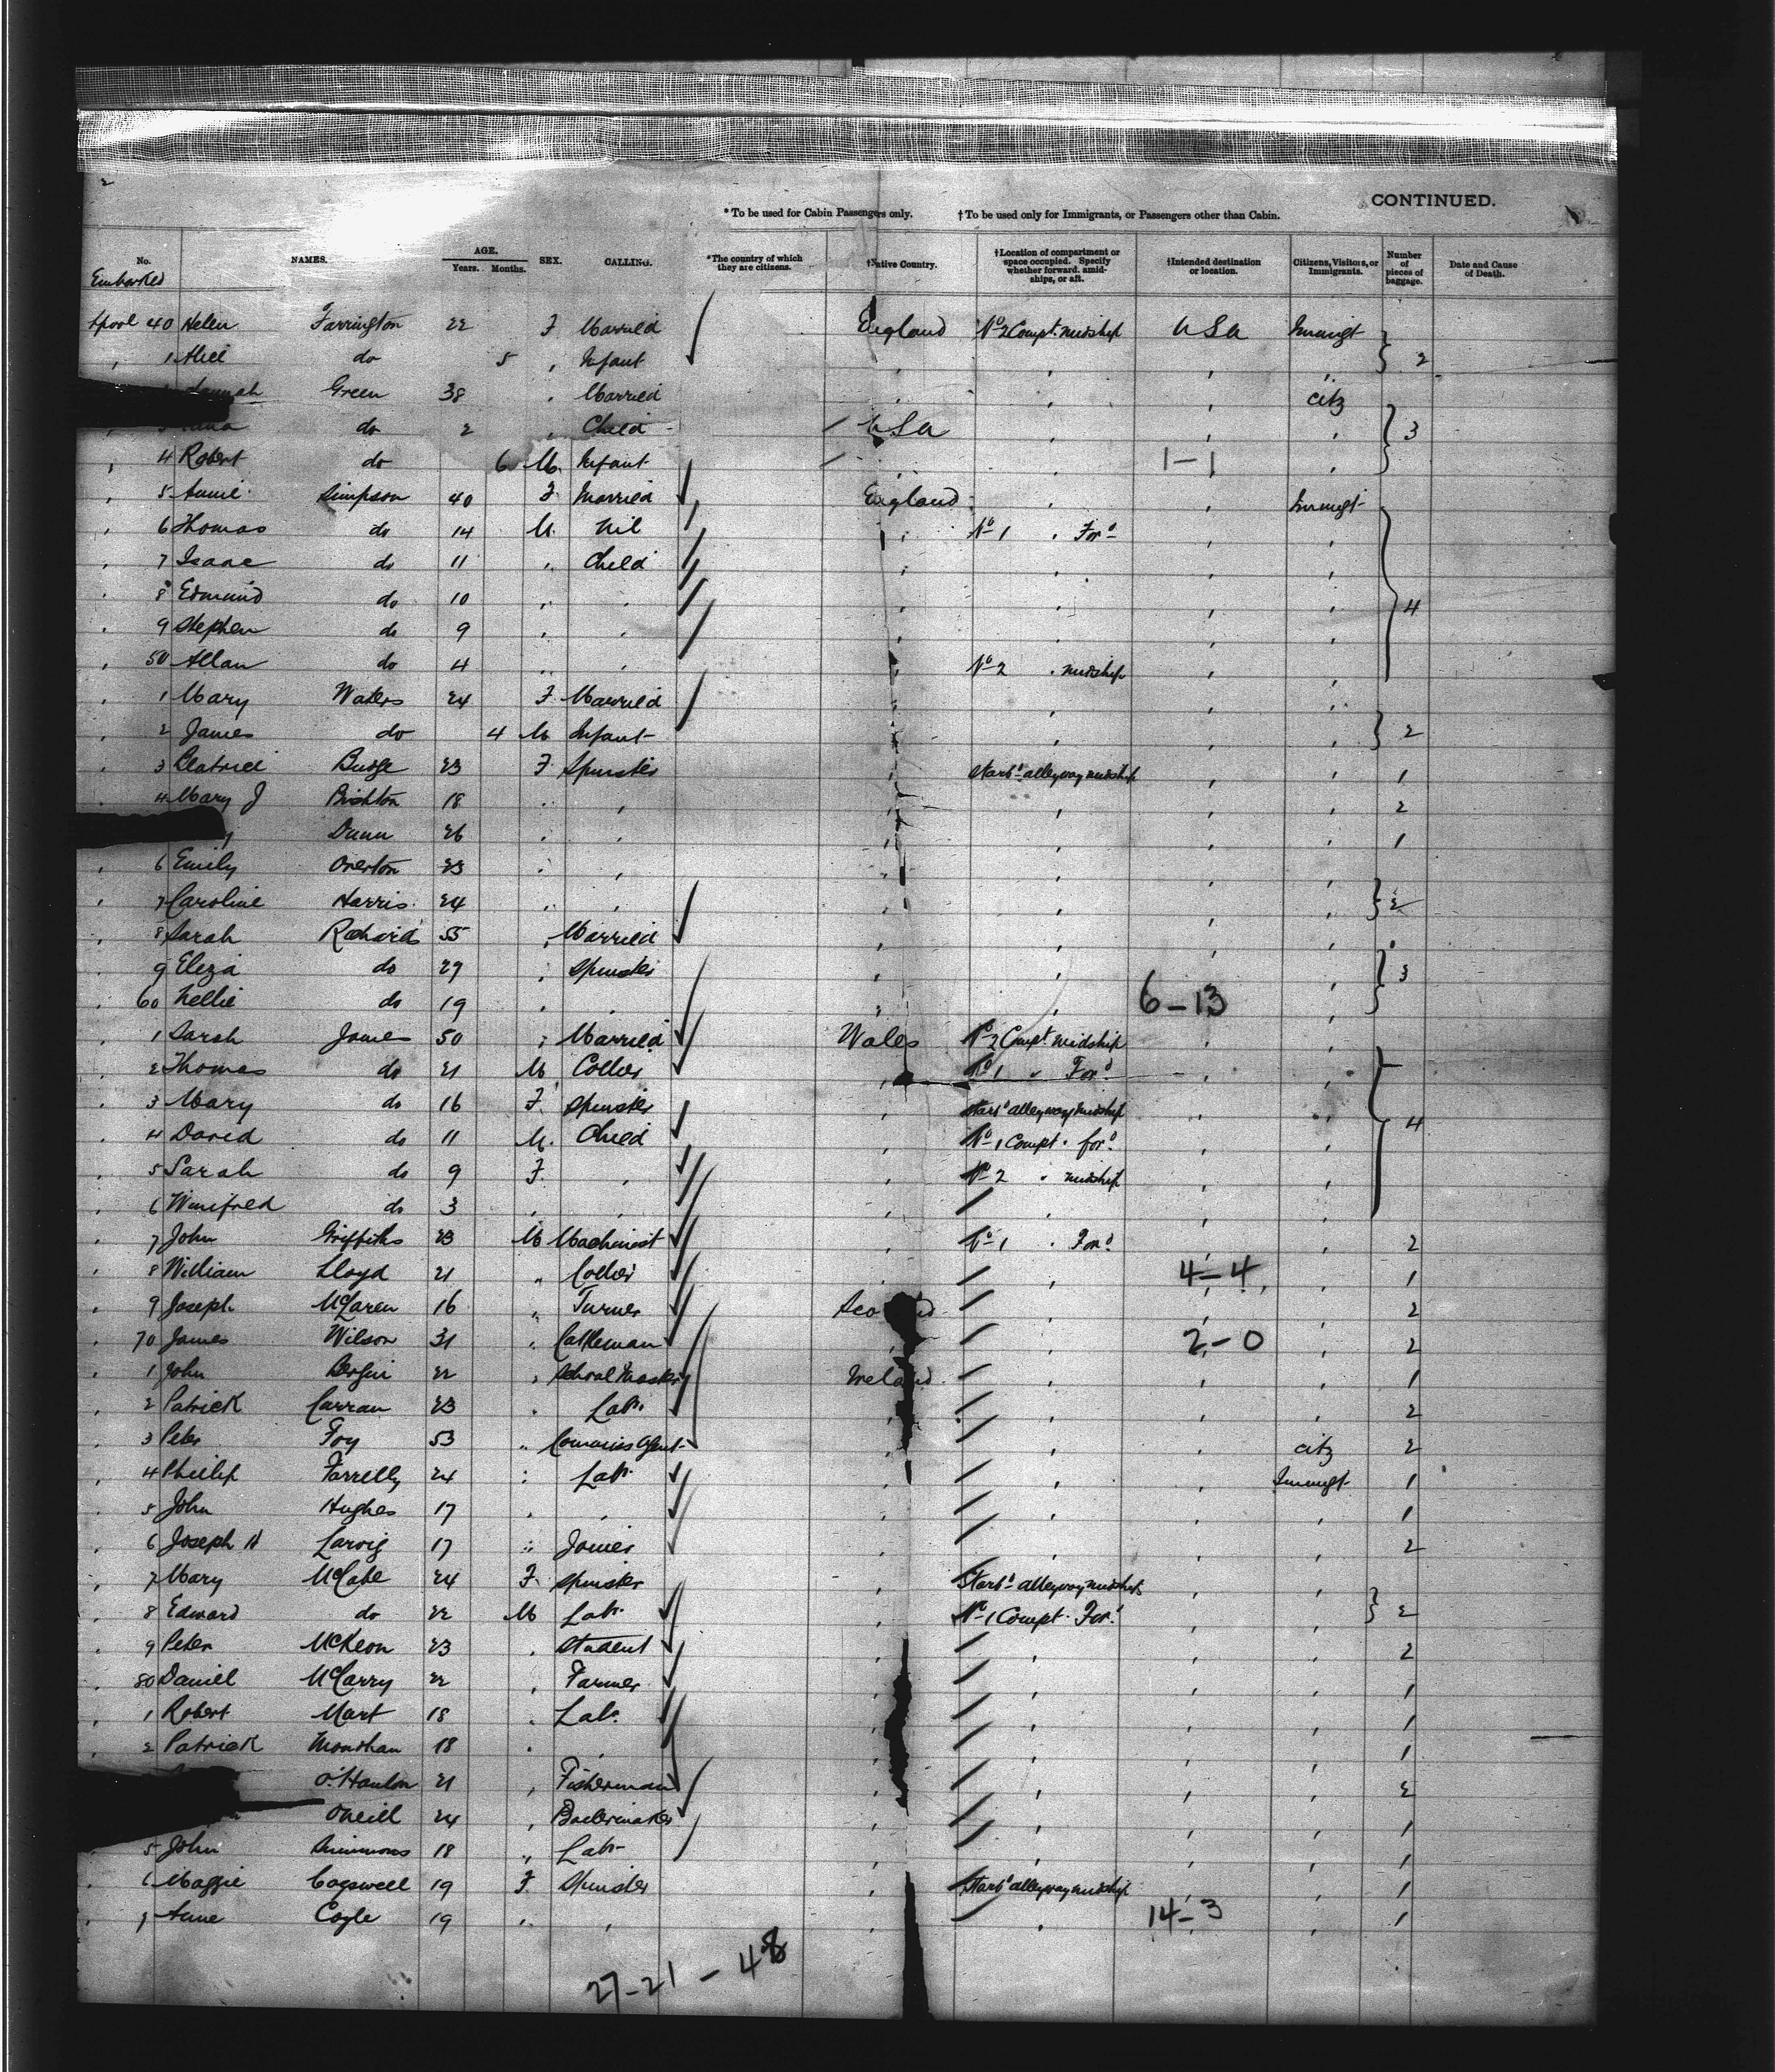 CONTINUED.
* To be used for Cabin Passengers only. † To be used only for Immigrants, or Passengers other than Cabin.
No. NAMES. AGE. Years. Months. SEX. CALLING. *The country of which they are citizens. †Native Country. †Location of compartment or space occupied. Specify whether forward, amidships, or aft. †Intended destination or location. Citizens, Visitors, or Immigrants. Number of pieces of baggage. Date and Cause of Death.
Embarked
Lpool 40 Helen Farrington 22 F Married England No 2 Compt. midship USA Immigt
, 1 Alice do 5 , Infant , , , , 2
Green 38 , Married , , , citz
do 2 , Child USA , , , 3
, 4 Robert do 6 M. Infant , , 1-1 ,
, 5 Annie Simpson 40 F Married England , , Immigt
, 6 Thomas do 14 M. Nil , No 1 , Ford , ,
, 7 Isaac do 11 , Child , , , ,
, 8 Edmund do 10 , , , , , , 4
, 9 Stephen do 9 , , , , , ,
, 50 Allan do 4 , , , No 2 , midship , ,
, 1 Mary Waters 24 F Married , , , ,
, 2 James do 4 M Infant , , , , 2
, 3 Beatrice Budge 23 F Spinster , Starbd alleyway midship , , 1
, 4 Mary J Brishton 18 , , , , , , 2
Dunn 26 , , , , , , 1
, 6 Emily Overton 23 , , , , , ,
, 7 Caroline Harris 24 , , , , , , 2
, 8 Sarah Richards 55 , Married , , , ,
, 9 Eliza do 29 , Spinster , , , , 3
, 60 Nellie do 19 , , , , 6-13 ,
, 1 Sarah James 50 , Married Wales No 2 Compt midship , ,
, 2 Thomas do 21 M Collier , No 1 , Ford , ,
, 3 Mary do 16 F Spinster , Starbd alleyway midship , ,
, 4 David do 11 M. Child , No 1 Compt. ford , , 4
, 5 Sarah do 9 F , , No 2 , midship , ,
, 6 Winifred do 3 , , , , , ,
, 7 John Griffiths 23 M Machinist , No 1 , Ford , , 2
, 8 William Lloyd 21 , Collier , , 4-4 , 1
, 9 Joseph McLaren 16 , Turner , , , 2
, 70 James Wilson 31 , Cattleman , , 2-0 , 2
, 1 John Bergin 22 , School Master Ireland , , , 1
, 2 Patrick Curran 23 , Labr. , , , , 2
, 3 Peter Foy 53 , Commiss Agent , , , citz 2
, 4 Philip Farrelly 24 , Labr. , , , Immigt 1
, 5 John Hughes 17 , , , , , , 1
, 6 Joseph H 17 , Joiner , , , , 2
, 7 Mary McCabe 24 F Spinster , Starbd alleyway midship , ,
, 8 Edward do 22 M Labr. , No 1 Compt. Ford , , 2
, 9 Peter McKeon 23 , Student , , , , 2
, 80 Daniel McCarry 22 , Farmer , , , , 1
, 1 Robert Mart 18 , Labr. , , , , 1
, 2 Patrick Monahan 18 , , , , , , 1
O'Hanlon 21 , Fisherman , , , , 2
O'Neill 24 , Boilermaker , , , , 1
, 5 John Simmons 18 , Labr , , , , 1
, 6 Maggie Cogswell 19 F Spinster , Starbd alleyway midship , , 1
, 7 Anne Coyle 19 , , , , 14-3 , 1
27-21-48